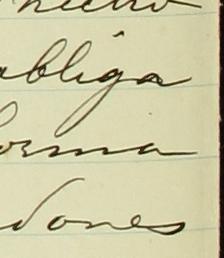 obliga
orma
dones